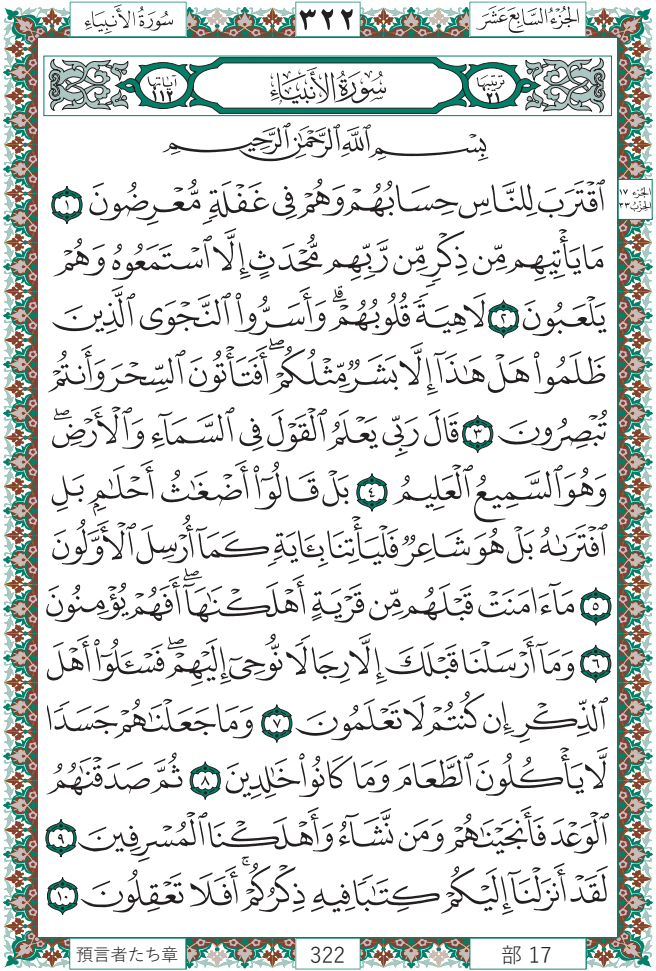 سُورَةُ الأَنبِيَاءِ ٣٢٢ الجُزْءُ السَّابِعَ عَشَرَ
آياتها ١١٢ سُورَةُ الأَنبِيَاءِ ترتيبها ٢١
بِسْمِ ٱللَّهِ ٱلرَّحْمَٰنِ ٱلرَّحِيمِ
الجزء ١٧
الحزب ٣٣
ٱقْتَرَبَ لِلنَّاسِ حِسَابُهُمْ وَهُمْ فِى غَفْلَةٍ مُّعْرِضُونَ ١
مَا يَأْتِيهِم مِّن ذِكْرٍ مِّن رَّبِّهِم مُّحْدَثٍ إِلَّا ٱسْتَمَعُوهُ وَهُمْ
يَلْعَبُونَ ٢ لَاهِيَةً قُلُوبُهُمْ ۗ وَأَسَرُّوا۟ ٱلنَّجْوَى ٱلَّذِينَ
ظَلَمُوا۟ هَلْ هَٰذَآ إِلَّا بَشَرٌ مِّثْلُكُمْ ۖ أَفَتَأْتُونَ ٱلسِّحْرَ وَأَنتُمْ
تُبْصِرُونَ ٣ قَالَ رَبِّى يَعْلَمُ ٱلْقَوْلَ فِى ٱلسَّمَآءِ وَٱلْأَرْضِ ۖ
وَهُوَ ٱلسَّمِيعُ ٱلْعَلِيمُ ٤ بَلْ قَالُوٓا۟ أَضْغَٰثُ أَحْلَٰمٍۭ بَلِ
ٱفْتَرَىٰهُ بَلْ هُوَ شَاعِرٌ فَلْيَأْتِنَا بِـَٔايَةٍ كَمَآ أُرْسِلَ ٱلْأَوَّلُونَ
٥ مَآ ءَامَنَتْ قَبْلَهُم مِّن قَرْيَةٍ أَهْلَكْنَٰهَآ ۖ أَفَهُمْ يُؤْمِنُونَ
٦ وَمَآ أَرْسَلْنَا قَبْلَكَ إِلَّا رِجَالًا نُّوحِىٓ إِلَيْهِمْ ۖ فَسْـَٔلُوٓا۟ أَهْلَ
ٱلذِّكْرِ إِن كُنتُمْ لَا تَعْلَمُونَ ٧ وَمَا جَعَلْنَٰهُمْ جَسَدًا
لَّا يَأْكُلُونَ ٱلطَّعَامَ وَمَا كَانُوا۟ خَٰلِدِينَ ٨ ثُمَّ صَدَقْنَٰهُمُ
ٱلْوَعْدَ فَأَنجَيْنَٰهُمْ وَمَن نَّشَآءُ وَأَهْلَكْنَا ٱلْمُسْرِفِينَ ٩
لَقَدْ أَنزَلْنَآ إِلَيْكُمْ كِتَٰبًا فِيهِ ذِكْرُكُمْ ۖ أَفَلَا تَعْقِلُونَ ١٠
預言者たち章 322 部 17